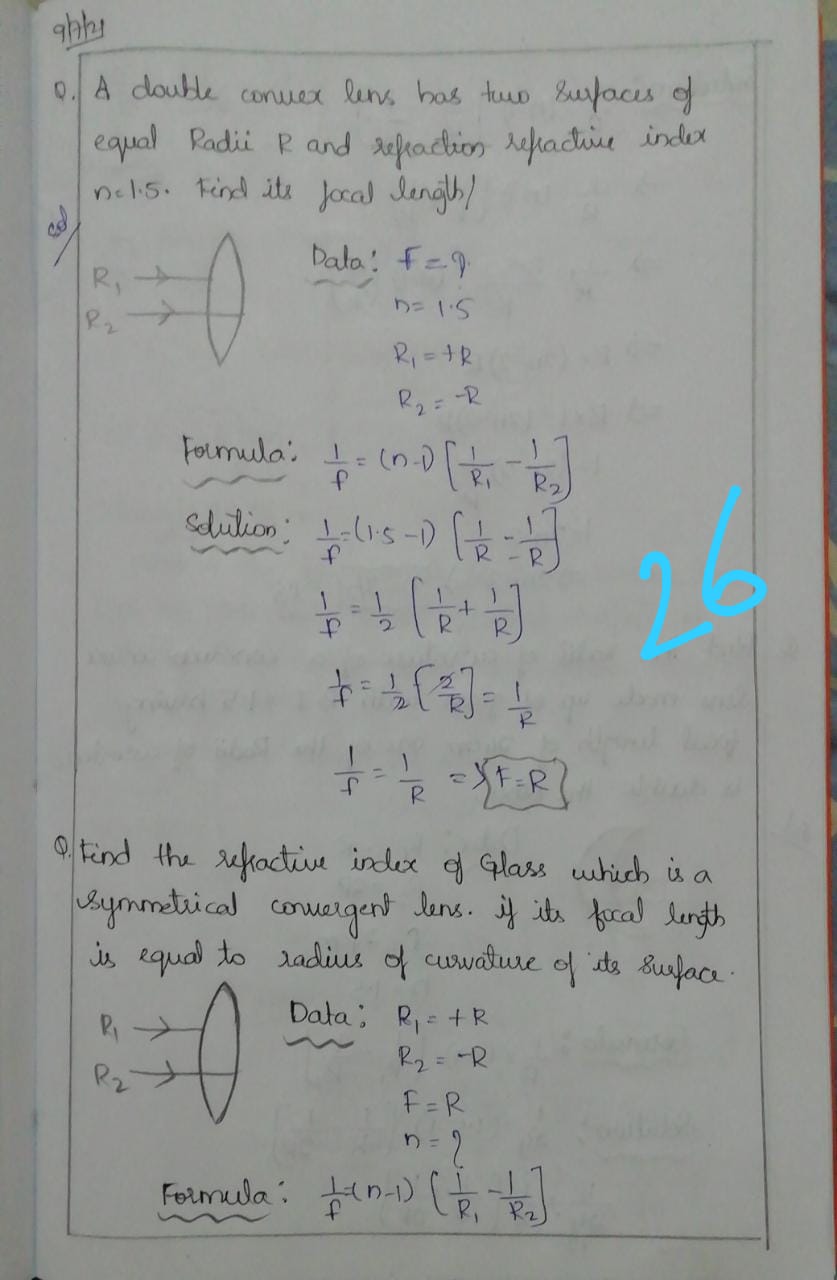 Q. A double convex lens has two Surfaces of
equal Radii R and refraction refractive index
n=1.5. Find its focal length/
R₁
R₂
Data: F=?
n=1.5
R₁=+R
R₂=-R
Formula: 1/f=(n-1)[1/R₁-1/R₂]
Solution: 1/f=(1.5-1)[1/R-1/-R]
1/f=1/2[1/R+1/R]
1/f=1/2[2/R]=1/R
1/f=1/R => F=R
26
Q. Find the refractive index of Glass which is a
Symmetrical convergent lens. if its focal length
is equal to radius of curvature of its Surface.
R₁
R₂
Data: R₁=+R
R₂=-R
F=R
n=?
Formula: 1/f=(n-1)[1/R₁-1/R₂]